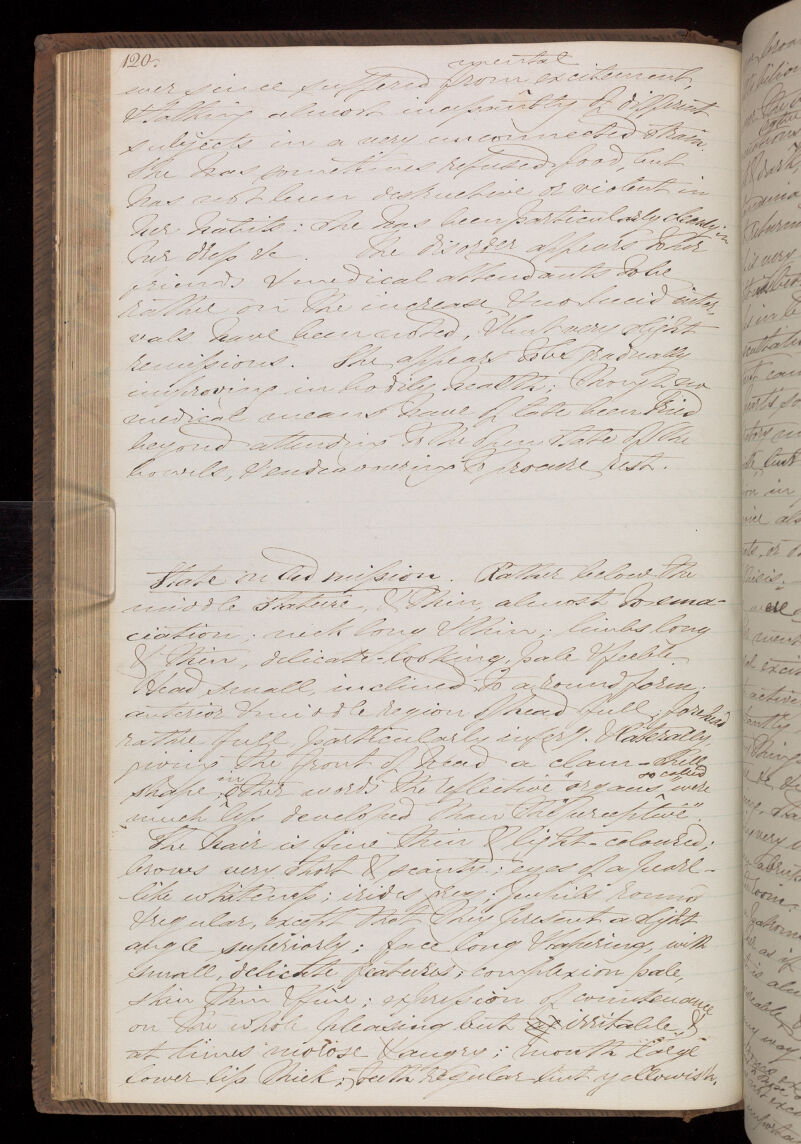 120.
mental
ever since suffered from excitement,
& talking almost incessantly of different
subjects in a very unconnected strain.
She has sometimes refused food, but
has not been destructive or violent in
her habits: she has been particularly cleanly in
her dress &c. The disorder appears to her
friends & medical attendants to be
rather on the increase & no lucid inter-
vals have been noted, & but very slight
remissions. She appears to be gradually
improving in bodily health; though no
medical means have of late been tried
beyond attending to the open state of the
bowels, & endeavouring to procure rest.
State on Admission. Rather below the
middle stature, & thin, almost to ema-
ciation; neck long & thin; limbs long
& thin, delicate-looking, pale & feeble.
Head small, inclined to a round form;
anterior & middle region of head full; forehead
rather full, particularly & laterally
giving the front of head a clam-shell
shape; in other words the reflective "organs" so called were
much less developed than the "perceptive".
The hair is fine thin & light-coloured;
brows very short & scanty; eyes of a pearl-
-like whiteness; irides grey; pupils round
& regular, except that they present a slight
angle superiorly; face long & tapering, with
small, delicate features; complexion pale,
skin thin & fine; expression of countenance
on the whole pleasing but irritable, &
at times morose & angry; mouth large
lower lip thick; teeth regular but yellowish.